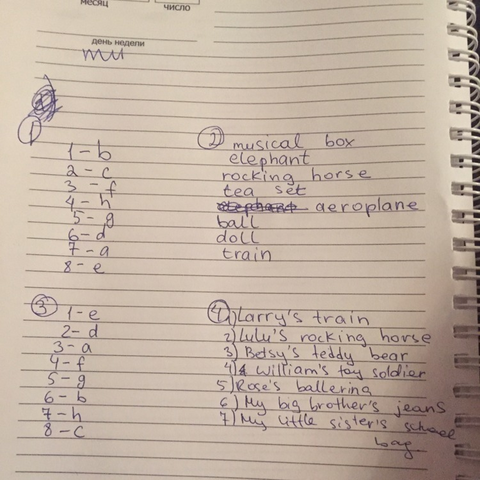 месяц
число
день недели
①
1 - b
2 - c
3 - f
4 - h
5 - g
6 - d
7 - a
8 - e
② musical box
elephant
rocking horse
tea set
aeroplane
ball
doll
train
③
1 - e
2 - d
3 - a
4 - f
5 - g
6 - b
7 - h
8 - c
④ 1) Larry's train
2) Lulu's rocking horse
3) Betsy's teddy bear
4) William's toy soldier
5) Rose's ballerina
6) My big brother's jeans
7) My little sister's school
bag